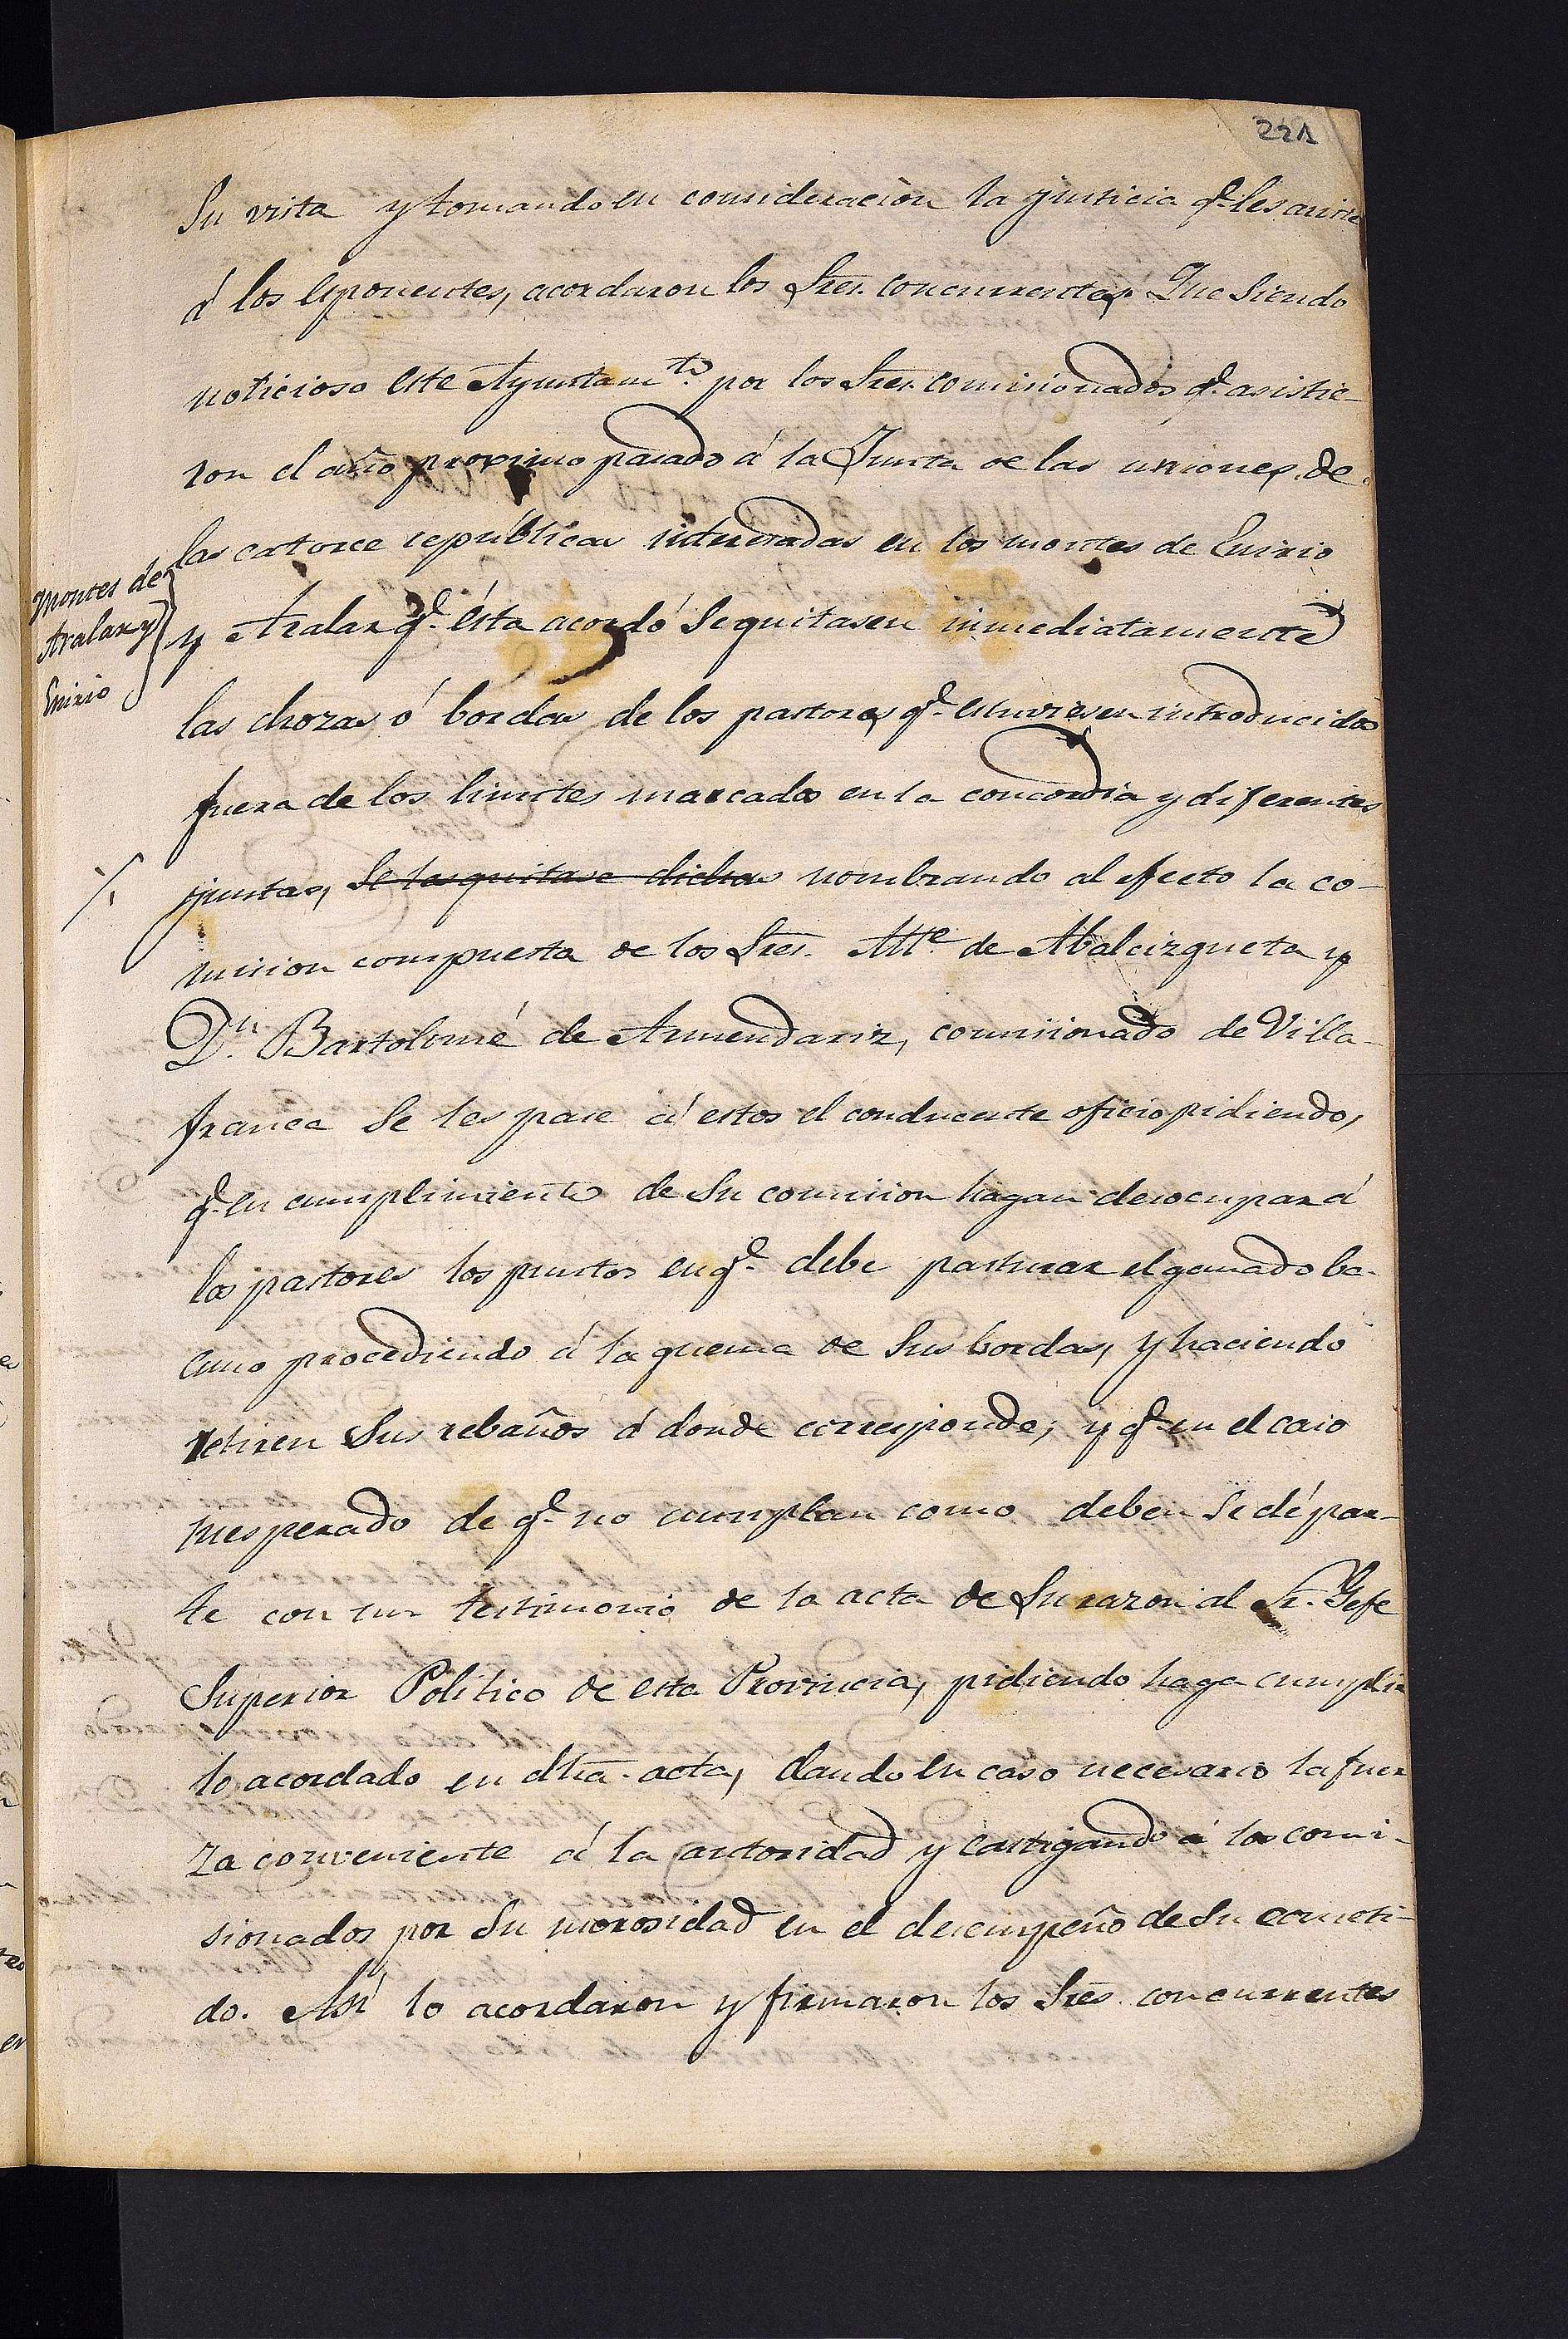 221
Su vista y tomando en consideraciòn la justicia q.e les asiste
á los esponentes, acordaron los Sres. concurrentes: Que siendo
noticioso este Ayuntam.to por los Sres. comisionados q.e asistie-
ron el año proximo pasado á la Junta de las uniones, de
las catorce repúblicas interesadas en los montes de Enirio
Montes de
Aralar y
Enirio
y Aralar q.e ésta acordó se quitasen inmediatamente
las chozas ó bordas de los pastores, q.e estuviesen introducidos
fuera de los limites marcados en la concordia y diferentes
juntas, se las quitase dichas nombrando al efecto la co-
mision compuesta de los Sres. Alc.e de Abalcizqueta y
D.n Bartolomé de Armendariz, comisionado de Villa-
franca se les pase á estos el conducente oficio pidiendo,
q.e en cumplimiento de su comision hagan desocupar á
los pastores los puntos en q.e debe pasturar el ganado ba-
cuno procediendo á la quema de sus bordas, y haciendo
retiren sus rebaños á donde corresponde; y q.e en el caso
inesperado de q.e no cumplan como deben se dé par-
te con un testimonio de la acta de su razon al Sr. Gefe
Superior Politico de esta Provincia, pidiendo haga cumplir
lo acordado en dha. acta, dando en caso necesario la fuer
za conveniente á la autoridad y castigando á los comi-
sionados por su morosidad en el desempeño de su cometi-
do. Asi lo acordaron y firmaron los Sres. concurrentes